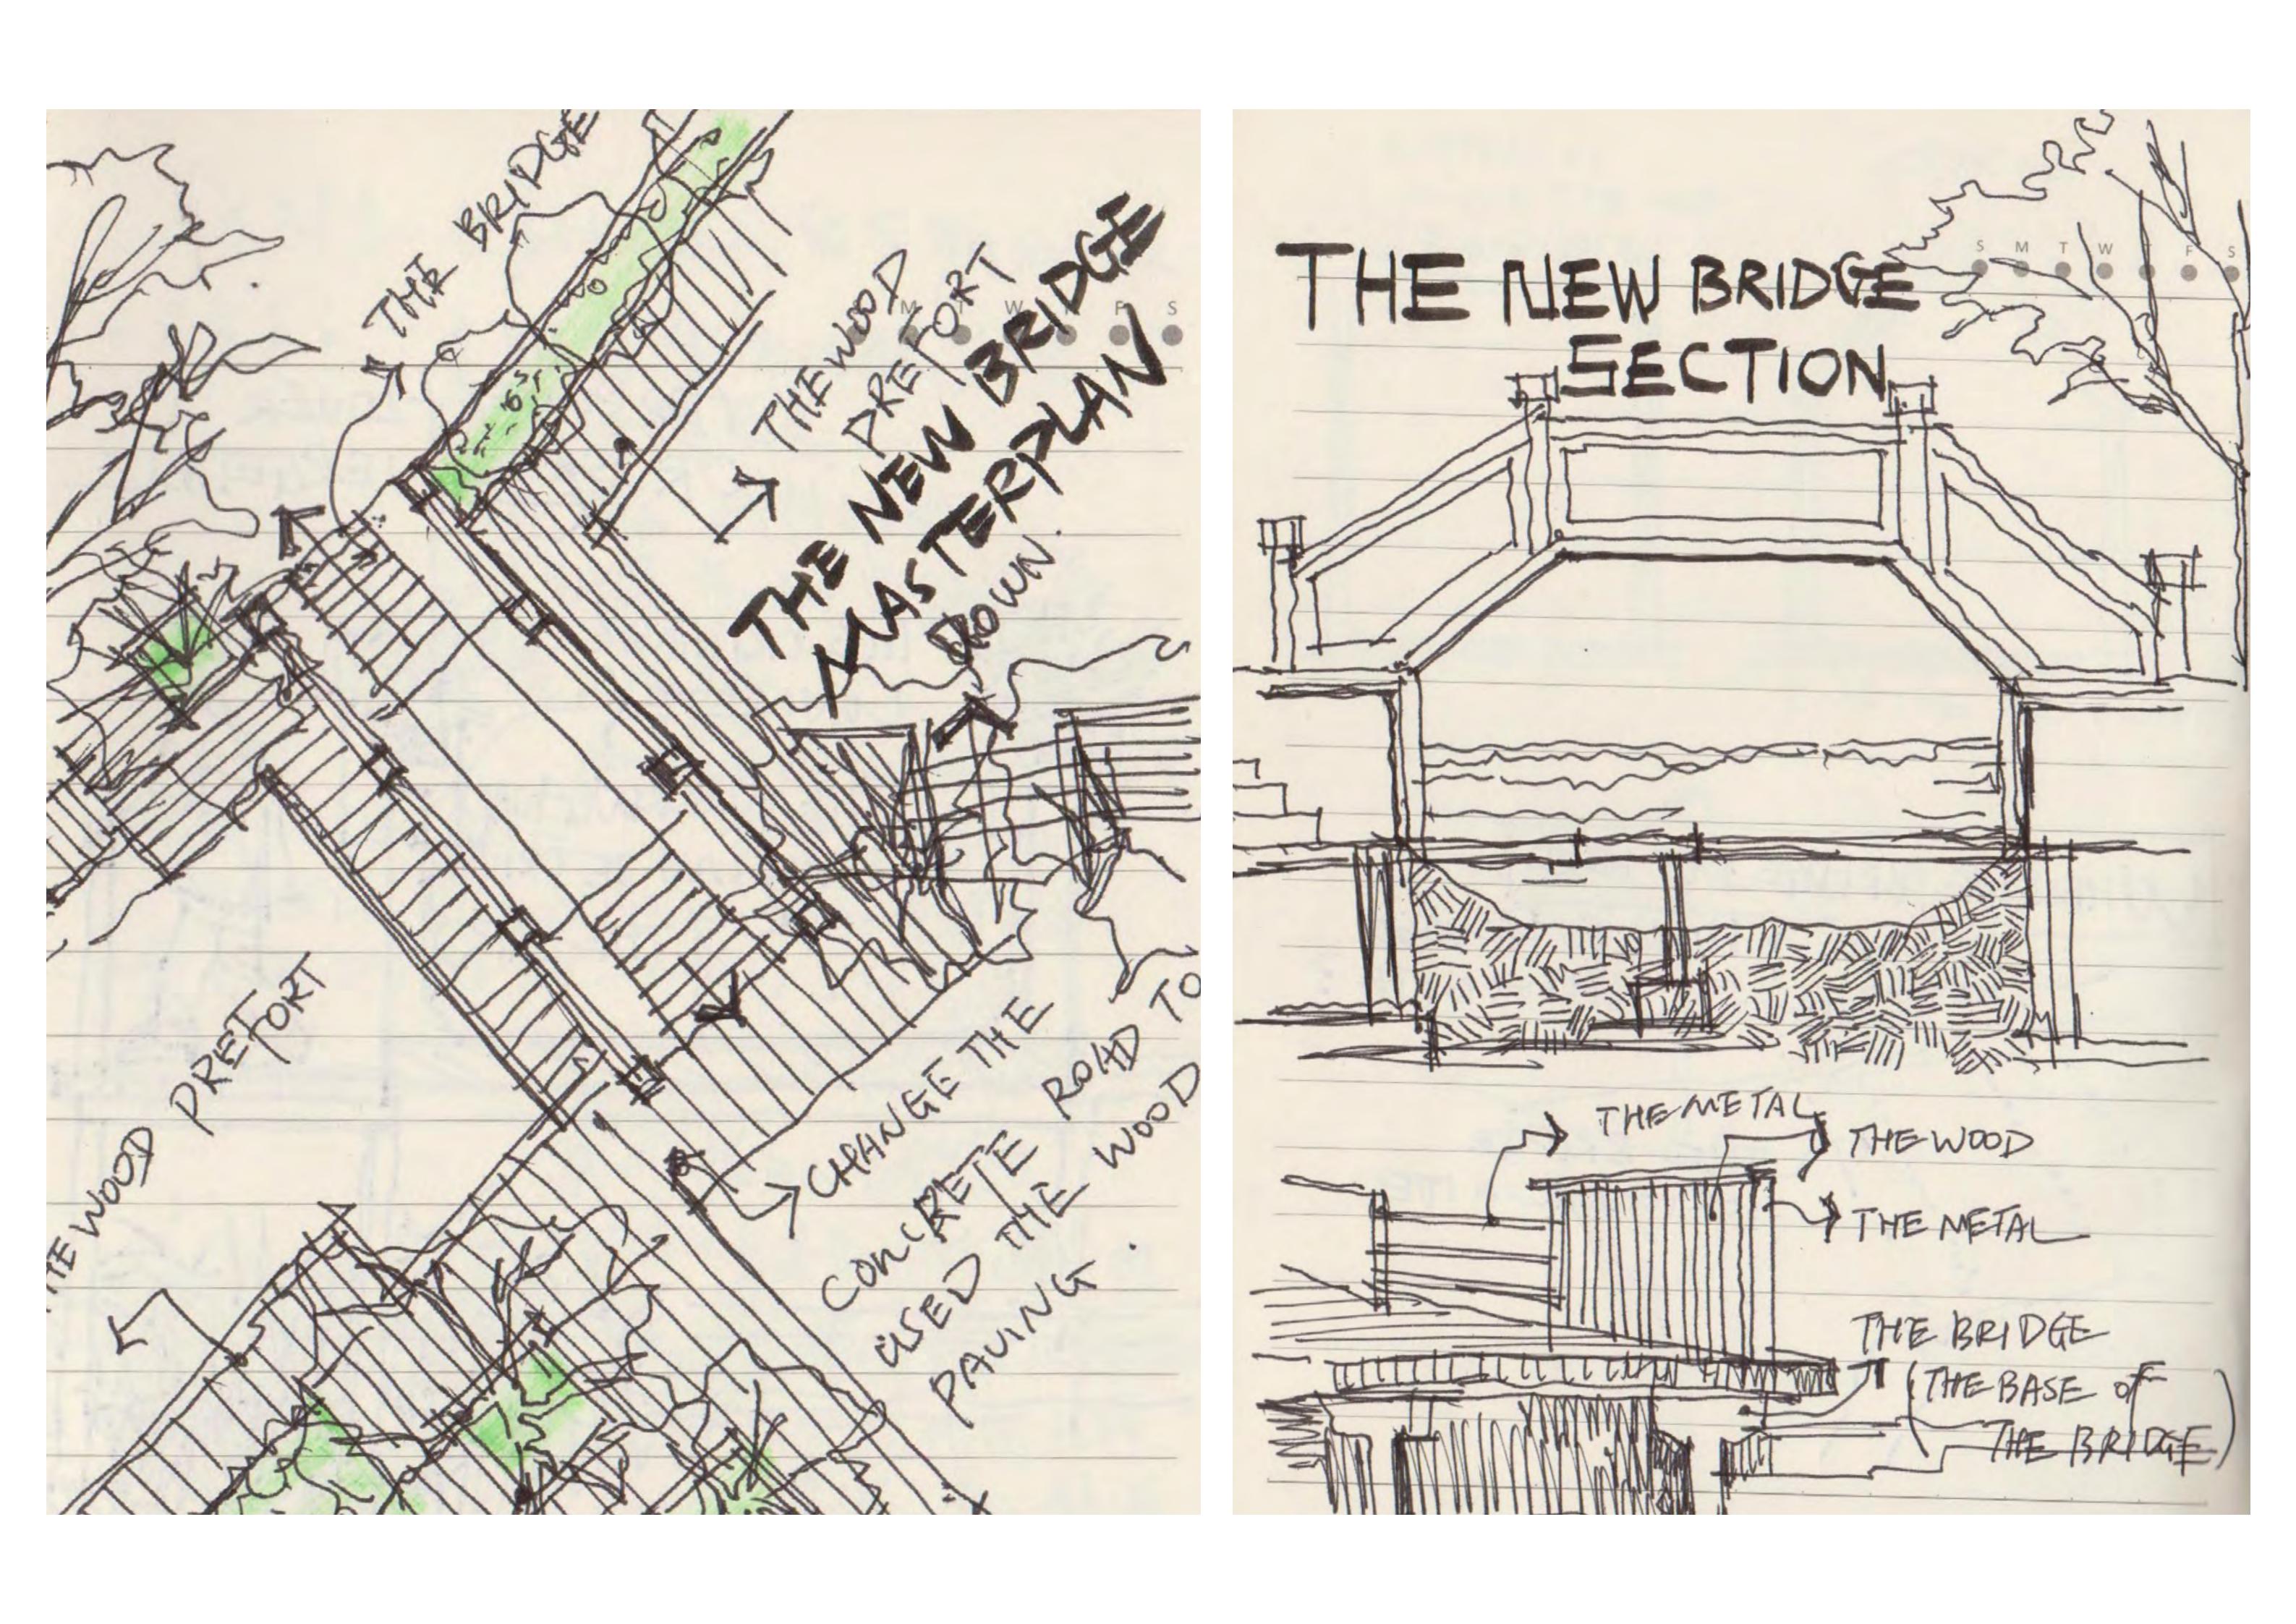 THE BRIDGE
THE WOOD
PREFORT
M T W F S
THE NEW BRIDGE
MASTERPLAN
DOWN.
THE WOOD PREFORT
CHANGE THE
CONCRETE ROAD TO
USED THE WOOD
PAVING.
S M T W F S
THE NEW BRIDGE
SECTION
THE METAL
THE WOOD
THE METAL
THE BRIDGE
(THE BASE OF
THE BRIDGE)